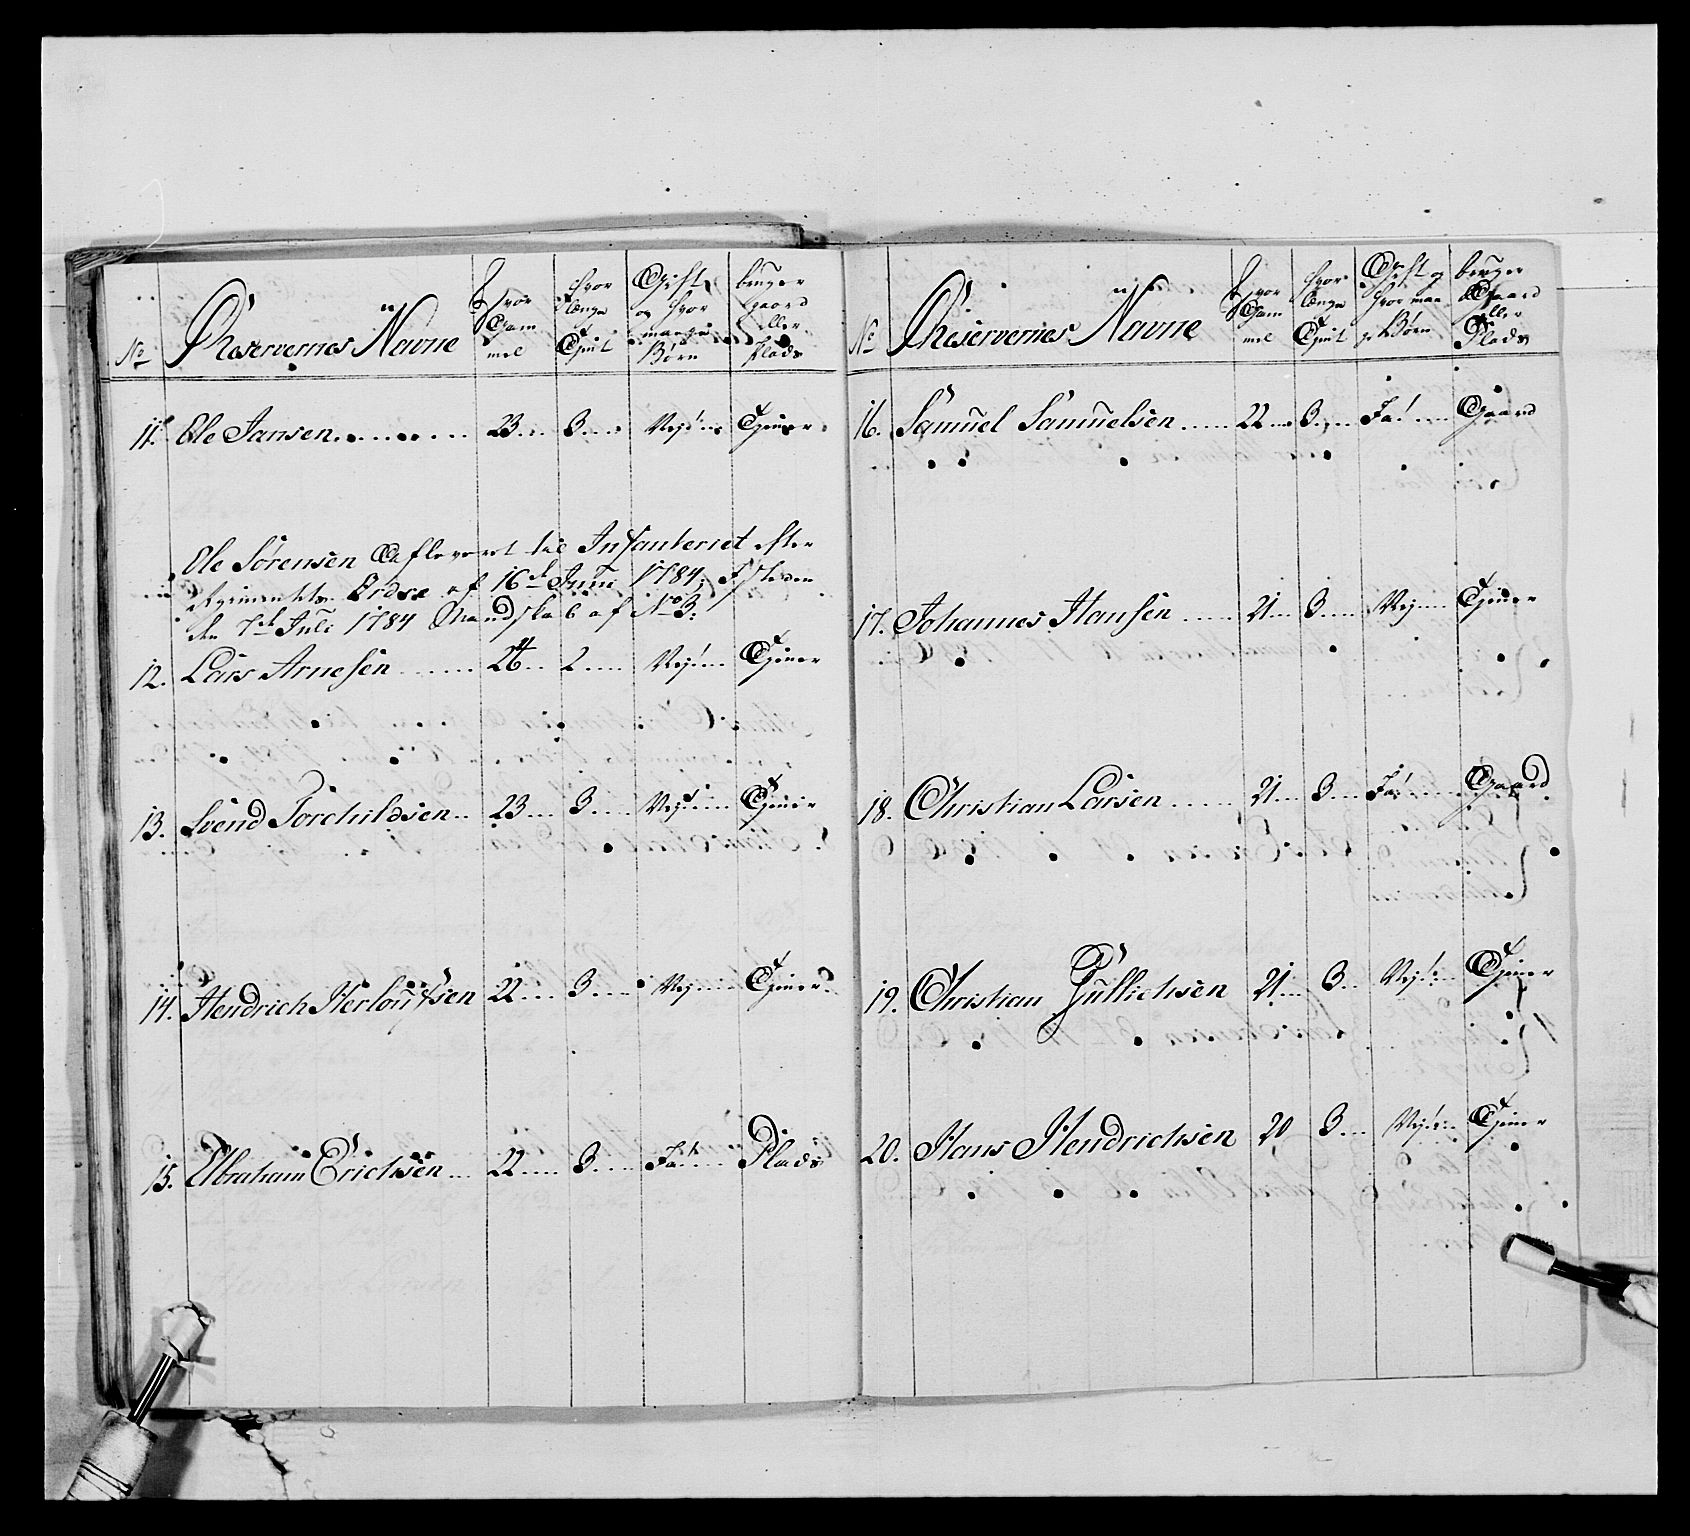 No
Reservernes Navne
Hvor Gam mel
hvor længe Tjent
Gift, og hvor mange Børn
bruger gaard eller Plads
11. Ole Jansen 23 3 Nej Tjener
Ole Sørensen Afleveret til Infanteriet efter
Regimentets Ordre af 16de Junii 1784; I steden
den 7de Juli 1784 Mandskab af No 3.
12. Lars Arnesen 24 2 Nej Tjener
13. Svend Torchildsen 23 3 Nej Tjener
14. Hendrich Herlouf̈sen 22 3 Nej Tjener
15. Abraham Erichsen 22 3 Ja Plads
No
Reservernes Navne
Hvor Gam mel
hvor længe Tjent
Gift og hvor man ge Børn
bruger Gaard eller Plads
16. Samuel Samuelsen 22 3 Ja Gaard
17. Johannes Hansen 21 3 Nej Tjener
18. Christian Larsen 21 3 Ja Gaard
19. Christian Gullichsen 21 3 Nej Tjener
20. Hans Hendrichsen 20 3 Nej Tjener